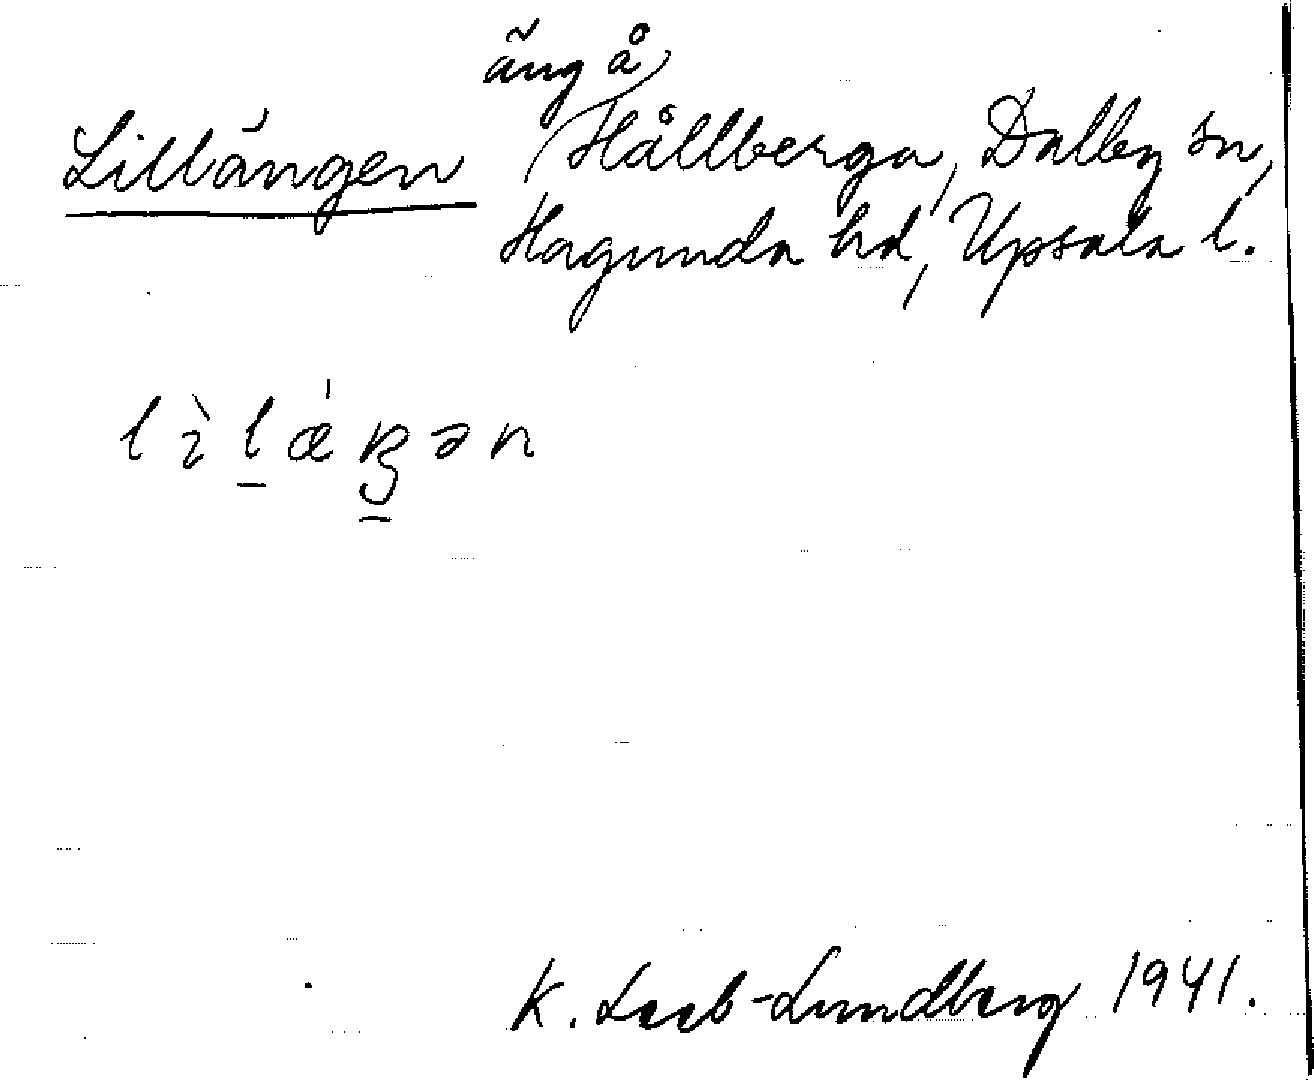 äng å
Lillängen Hållberga, Dalby sn,
Hagunda hd, Upsala l.
K. Leeb-Lundberg 1941.